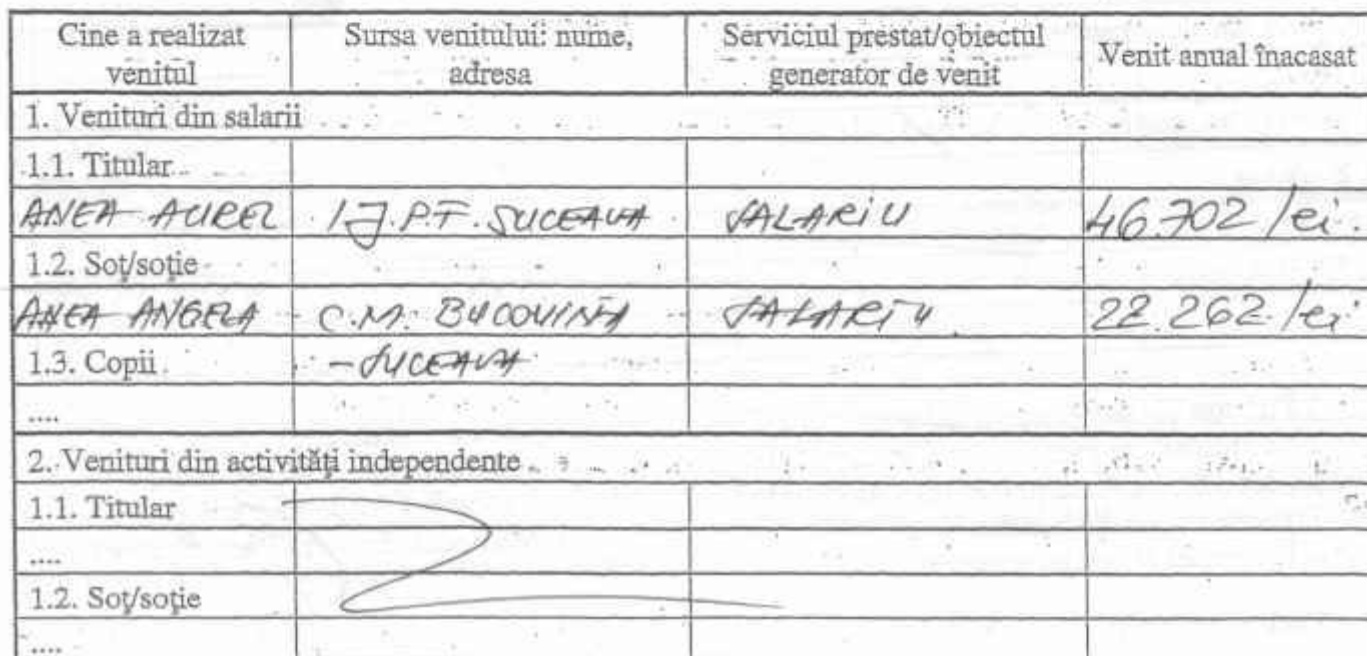 Cine a realizat venitul | Sursa venitului: nume, adresa | Serviciul prestat/obiectul generator de venit | Venit anual înacasat
1. Venituri din salarii
1.1. Titular
ANEA AUREL | IJ.P.F. SUCEAVA | SALARIU | 46.702 lei.
1.2. Soţ/soţie
ANEA ANGELA | C.M. BUCOVINA | SALARIU | 22.262 lei
1.3. Copii | - SUCEAVA
....
2. Venituri din activităţi independente
1.1. Titular
....
1.2. Soţ/soţie
....